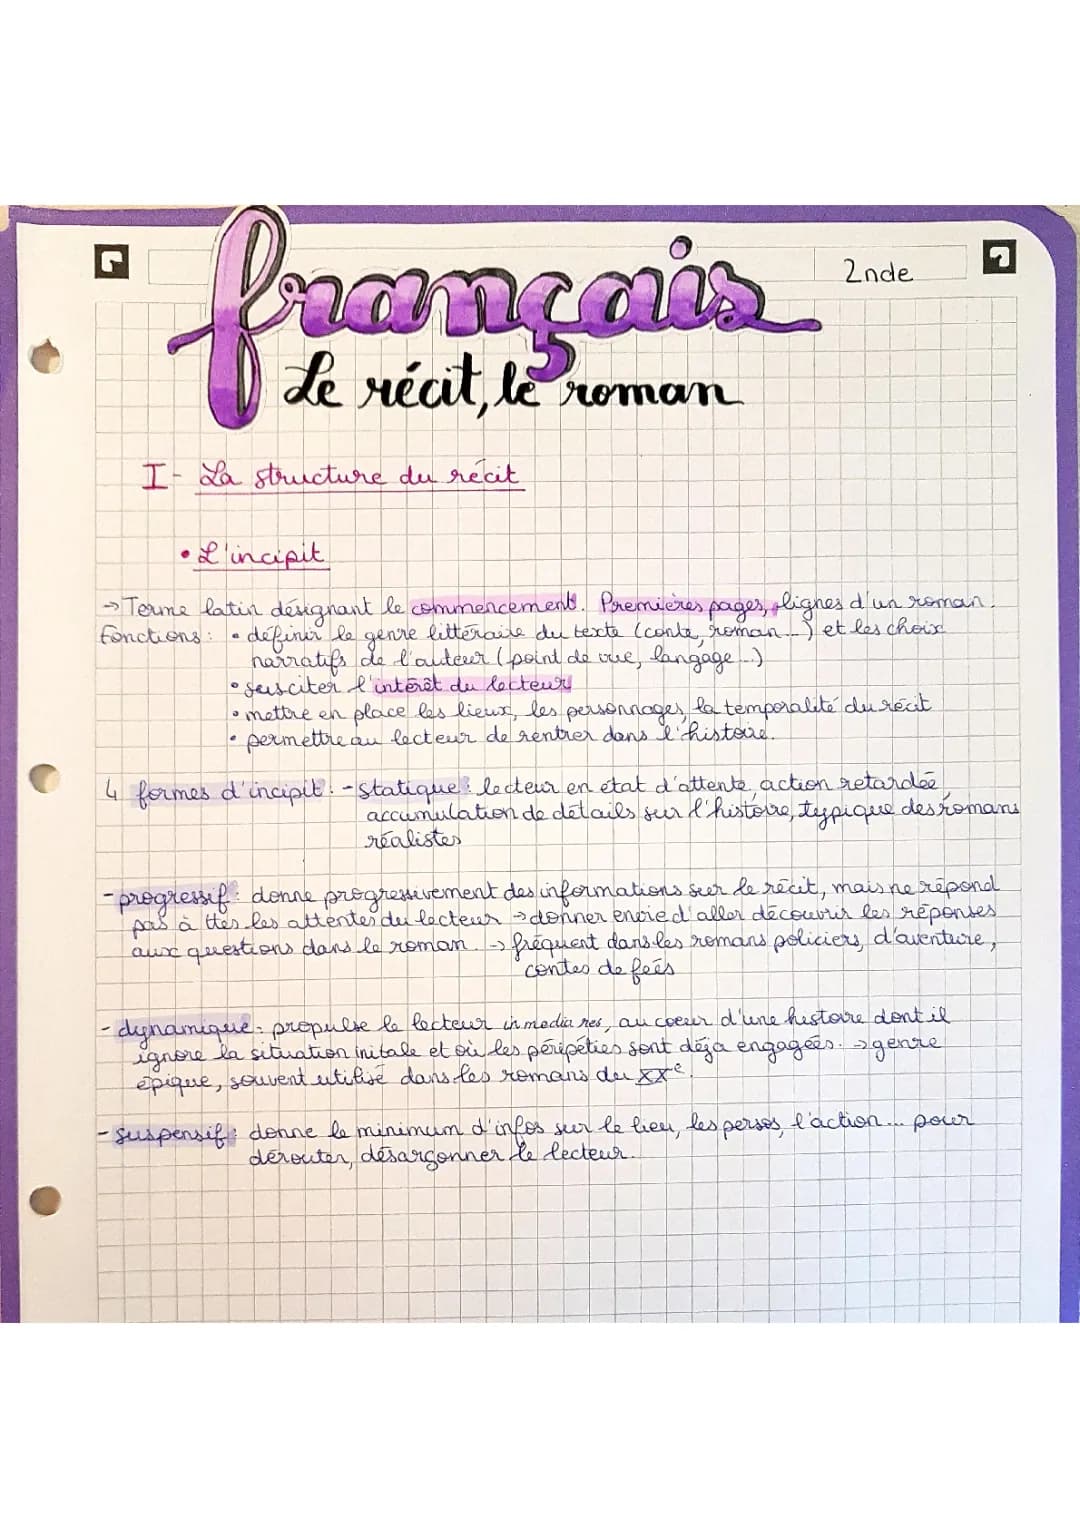 français
2nde
Le récit, le roman
I- La structure du récit
• L'incipit
→ Terme latin désignant le commencement. Premières pages, lignes d'un roman.
Fonctions : • définir le genre littéraire du texte (conte, roman...) et les choix
narratifs de l'auteur (point de vue, langage...)
• susciter l'intérêt du lecteur
• mettre en place les lieux, les personnages, la temporalité du récit
• permettre au lecteur de rentrer dans l'histoire.
4 formes d'incipit : - statique : lecteur en état d'attente, action retardée,
accumulation de détails sur l'histoire, typique des romans
réalistes
- progressif : donne progressivement des informations sur le récit, mais ne répond
pas à ttes les attentes du lecteur → donner envie d'aller découvrir les réponses
aux questions dans le roman. → fréquent dans les romans policiers, d'aventure,
contes de feés
- dynamique : propulse le lecteur in media res, au coeur d'une histoire dont il
ignore la situation initale et où les péripéties sont déja engagées. → genre
épique, souvent utilisé dans les romans du XXe.
- suspensif : donne le minimum d'infos sur le lieu, les persos, l'action... pour
dérouter, désarçonner le lecteur.